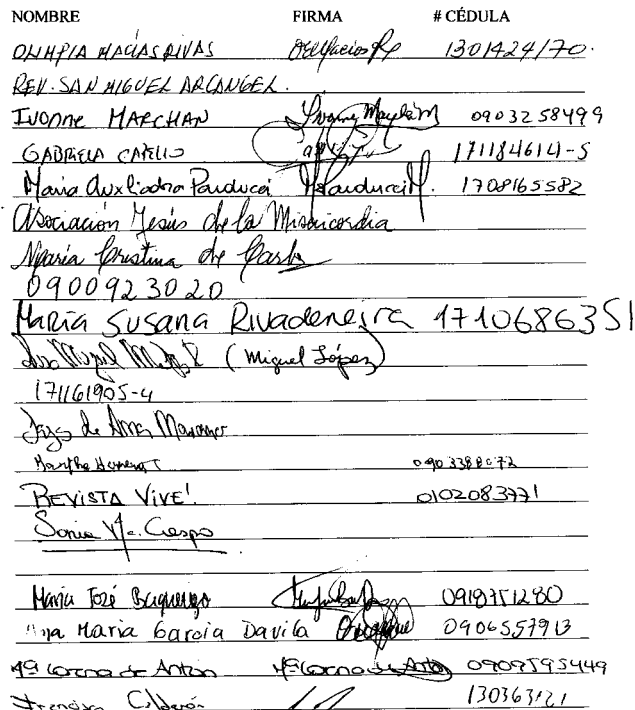 NOMBRE FIRMA # CÉDULA
OLIMPIA MACÍAS RIVAS 1301424170.
REV. SAN MIGUEL ARCANGEL.
IVONNE MARCHAN 0903258499
GABRIELA 171184614-5
Maria Auxiliadora Parducci 1708165582
Asociación Jesús de la Misericordia
María Cristina de
0900923020
María Susana Rivadeneira 1710686351
(Miguel López)
171161905-4
Martha Herrera T 0903388072
REVISTA VIVE! 0102083771
Sonia Crespo
María José Baquerizo 0918751280
Ana María García Davila 0906557913
Mª Lorena de Antón Mª Lorena de Antón 0909595449
Calderón 130363121